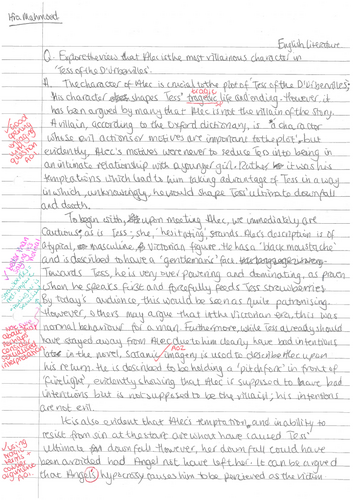 Hira Mahmood
English Literature
Q. Explore the view that Alec is the most villainous character in
'Tess of the D'Urbervilles'.
A. The character of Alec is crucial to the plot of 'Tess of the D'Urbervilles;
his character shapes Tess' tragic life and ending. However it
has been argued by many that Alec is not the villain of the story.
A villain, according to the Oxford dictionary, is 'a character
whose evil actions or motives are important to the plot', but
evidently, Alec's motives were never to seduce Tess into being in
an intimate relationship with a younger girl. Rather it was his
temptations which lead to him taking advantage of Tess in a way
in which, unknowingly, he would shape Tess' ultimate downfall
and death.
To begin with, upon meeting Alec, we immediately are
cautious, as is Tess; she, 'hesitating, stands'. Alec's description is of
a typical, masculine, Victorian figure. He has a 'black moustache'
and is described to have a 'gentleman's' face.
Towards Tess, he is very overpowering and dominating, as proven
when he speaks first and forcefully feeds Tess strawberries.
By today's audience, this would be seen as quite patronising.
However, others may argue that in the Victorian era, this was
normal behaviour for a man. Furthermore, while Tess already should
have stayed away from Alec due to him clearly have bad intentions
later in the novel, satanic imagery is used to describe Alec upon
AO2
his return. He is described to be holding a 'pitchfork' in front of
'firelight', evidently showing that Alec is supposed to have bad
intentions but is not supposed to be the villain; his intentions
are not evil.
It is also evident that Alec's temptation and inability to
resist from sin at the start are what have caused Tess'
ultimate downfall. However, her downfall could have
been avoided had Angel not have left her. It can be argued
that Angel's hypocrisy causes him to be perceived as the villain